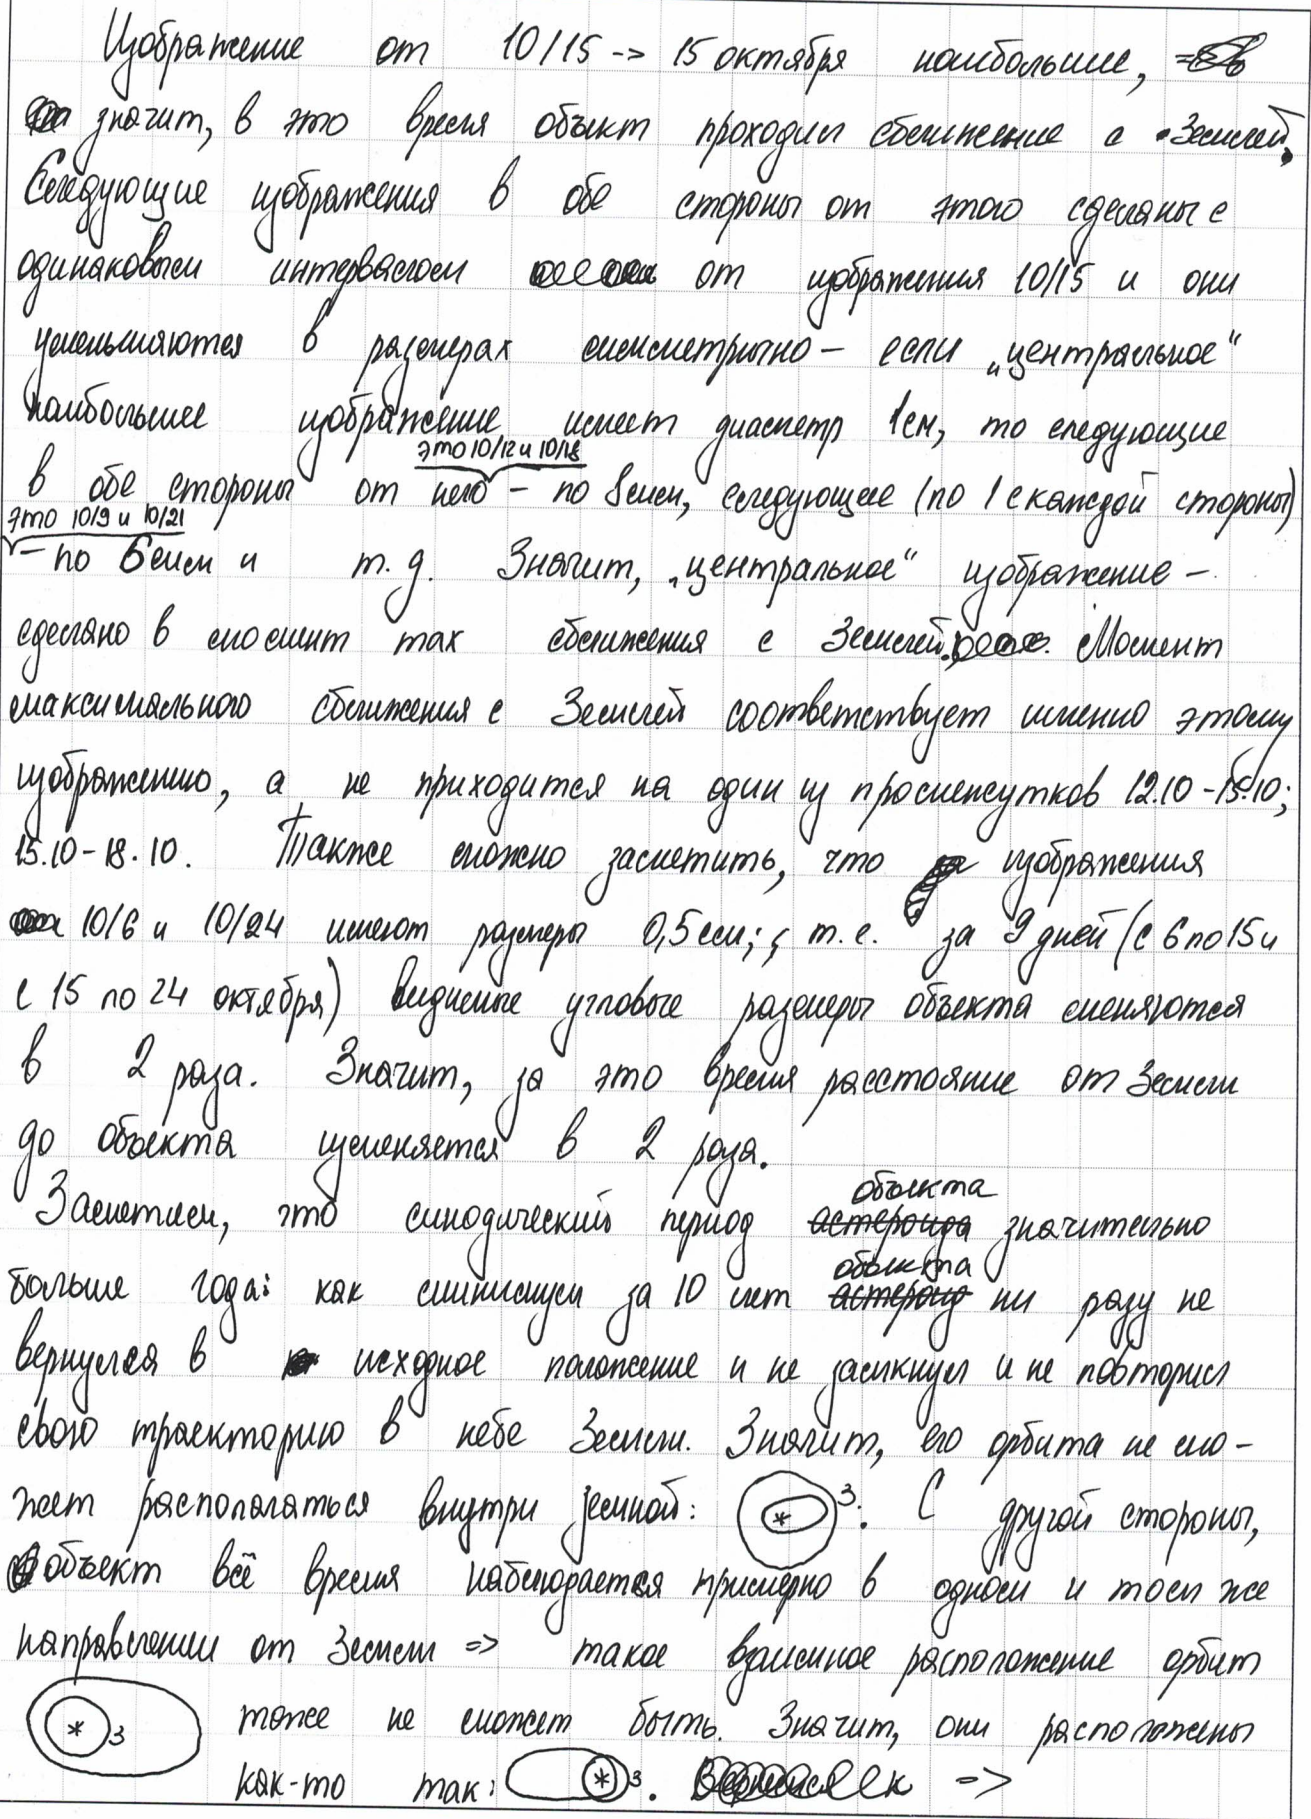 Изображение от 10/15 -> 15 октября наибольшее,
значит, в это время объект проходил сближение с Землей.
Следующие изображения в обе стороны от этого сделаны с
одинаковым интервалом от изображения 10/15 и они
уменьшаются в размерах симметрично – если „центральное“
наибольшее изображение имеет диаметр 1см, то следующие
это 10/12 и 10/18
в обе стороны от него – по 8мм, следующее (по 1 с каждой стороны)
это 10/9 и 10/21
– по 6мм и т.д. Значит, „центральное“ изображение –
сделано в момент max сближения с Землей. Момент
максимального сближения с Землей соответствует именно этому
изображению, а не приходится на один из промежутков 12.10 – 15.10;
15.10 – 18.10. Также можно заметить, что изображения
10/6 и 10/24 имеют размеры 0,5см; т.е. за 9 дней (с 6 по 15 и
с 15 по 24 октября) видимые угловые размеры объекта меняются
в 2 раза. Значит, за это время расстояние от Земли
до объекта изменяется в 2 раза.
объекта
Заметим, что синодический период астероида значительно
объекта
больше года: как минимум за 10 лет астероид ни разу не
вернулся в исходное положение и не замкнул и не повторил
свою траекторию в небе Земли. Значит, его орбита не мо-
жет располагаться внутри земной: * З. С другой стороны,
объект всё время наблюдается примерно в одном и том же
направлении от Земли => такое взаимное расположение орбит
* З тоже не может быть. Значит, они расположены
как-то так: * З. =>